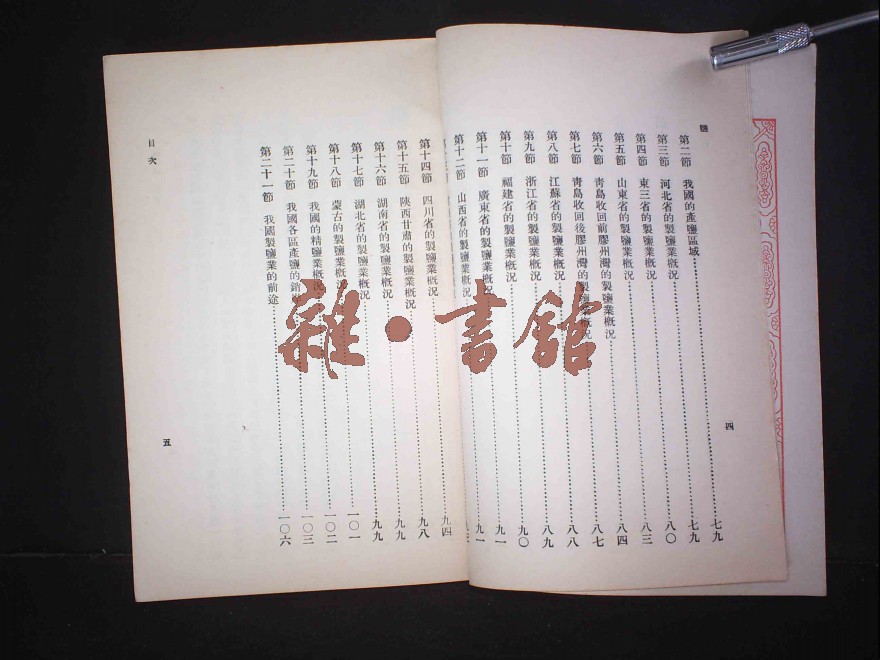 鹽
第二節 我國的產鹽區域……七九
第三節 河北省的製鹽業概況……七九
第四節 東三省的製鹽業概況……八〇
第五節 山東省的製鹽業概況……八三
第六節 青島收回前膠州灣的製鹽業概況……八四
第七節 青島收回後膠州灣的製鹽業概況……八七
第八節 江蘇省的製鹽業概況……八八
第九節 浙江省的製鹽業概況……八九
第十節 福建省的製鹽業概況……九〇
第十一節 廣東省的製鹽業概況……九一
第十二節 山西省的製鹽業概況……九一
四
第十四節 四川省的製鹽業概況……九四
第十五節 陝西甘肅的製鹽業概況……九八
第十六節 湖南省的製鹽業概況……九九
第十七節 湖北省的製鹽業概況……九九
第十八節 蒙古的製鹽業概況……一〇一
第十九節 我國的精鹽業概況……一〇二
第二十節 我國各區產鹽的銷……一〇三
第二十一節 我國製鹽業的前途……一〇六
目次
五
雜·書館